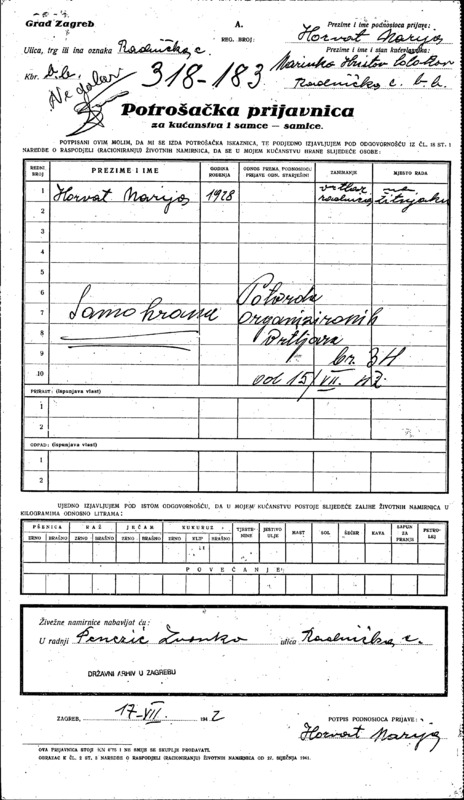 Grad Zagreb
A.
REG. BROJ:
Prezime i ime podnosioca prijave:
Horvat Marija
Ulica, trg ili ina oznaka Radnička c.
Prezime i ime i stan kućevlasnika:
Marinko
Kbr. b.b.
318-183
Radnička c. b.b.
Potrošačka prijavnica
za kućanstva i samce — samice.
POTPISANI OVIM MOLIM, DA MI SE IZDA POTROŠAČKA ISKAZNICA, TE PODJEDNO IZJAVLJUJEM POD ODGOVORNOŠĆU IZ ČL. 18 ST. 1
NAREDBE O RASPODJELI (RACIONIRANJU) ŽIVOTNIH NAMIRNICA, DA SE U MOJEM KUĆANSTVU HRANE SLIJEDEĆE OSOBE:
REDNI BROJ PREZIME I IME GODINA ROĐENJA ODNOS PREMA PODNOSIOCU PRIJAVE ODN. STARJEŠINI ZANIMANJE MJESTO RADA
1 Horvat Marija 1928 na žitnjaku
2
3
4
5
6 Potvrda
7 Samohrana organiziranih
8 Vrtljara
9 br. 34
10 od 15/VII. 42.
PRIRAST: (Ispunjava vlast)
1
2
OTPAD: (Ispunjava vlast)
1
2
UJEDNO IZJAVLJUJEM POD ISTOM ODGOVORNOŠĆU, DA U MOJEM KUĆANSTVU POSTOJE SLIJEDEĆE ZALIHE ŽIVOTNIH NAMIRNICA U
KILOGRAMIMA ODNOSNO LITRAMA:
PŠENICA RAŽ JEČAM KUKURUZ TJESTENINE JESTIVO ULJE MAST SOL ŠEĆER KAVA SAPUN ZA PRANJE PETROLEJ
ZRNO BRAŠNO ZRNO BRAŠNO ZRNO BRAŠNO ZRNO KLIP BRAŠNO
POVEĆANJE:
Živežne namirnice nabavljat ću:
U radnji Penezić Zvonko ulica Radnička c.
DRŽAVNI ARHIV U ZAGREBU
ZAGREB, 17-VII. 1942
POTPIS PODNOSIOCA PRIJAVE:
Horvat Marija
OVA PRIJAVNICA STOJI DIN 0'75 I NE SMIJE SE SKUPLJE PRODAVATI.
OBRAZAC K ČL. 2 ST. 3 NAREDBE O RASPODJELI (RACIONIRANJU) ŽIVOTNIH NAMIRNICA OD 27. SIJEČNJA 1941.